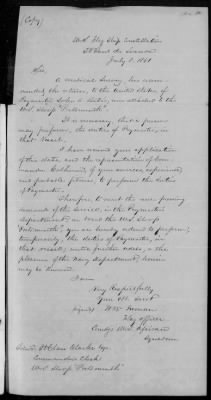 (Copy)
U.S. Flag Ship Constellation
St Paul de Loando
July 5. 1861
Sir,
A medical Survey has recommended
the return, to the United States of
Paymaster John S. , now attached to the
U.S. Sloop "Portsmouth".
It is necessary, that a person
may perform, the duties of Paymaster, in
that Vessel.
I have your application
of this date, and the representation of Commander
of your services, experience,
and probable fitness, to perform the duties
of Paymaster.
Therefore, to meet the now pressing
demand of the Service, in the Paymaster's
department, on board the U.S. Sloop
"Portsmouth", you are hereby ordered to perform,
temporarily, the duties of Paymaster, in
that vessel; until further orders, or the
pleasure of the Navy Department, herein
may be known.
I am
Very Respectfully
Your Obt. Servt
Signed Wm Inman
Flag Officer
Comdg U.S. African
Squadron
St Clair Clarke Esq.
Commander's Clerk
U.S. Sloop "Portsmouth"